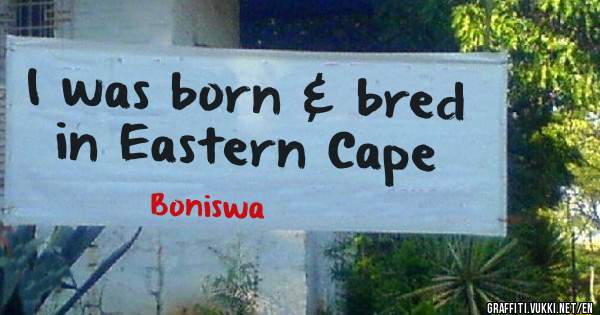 I was born & bred
in Eastern Cape
Boniswa
GRAFFITI.VUKKI.NET/EN